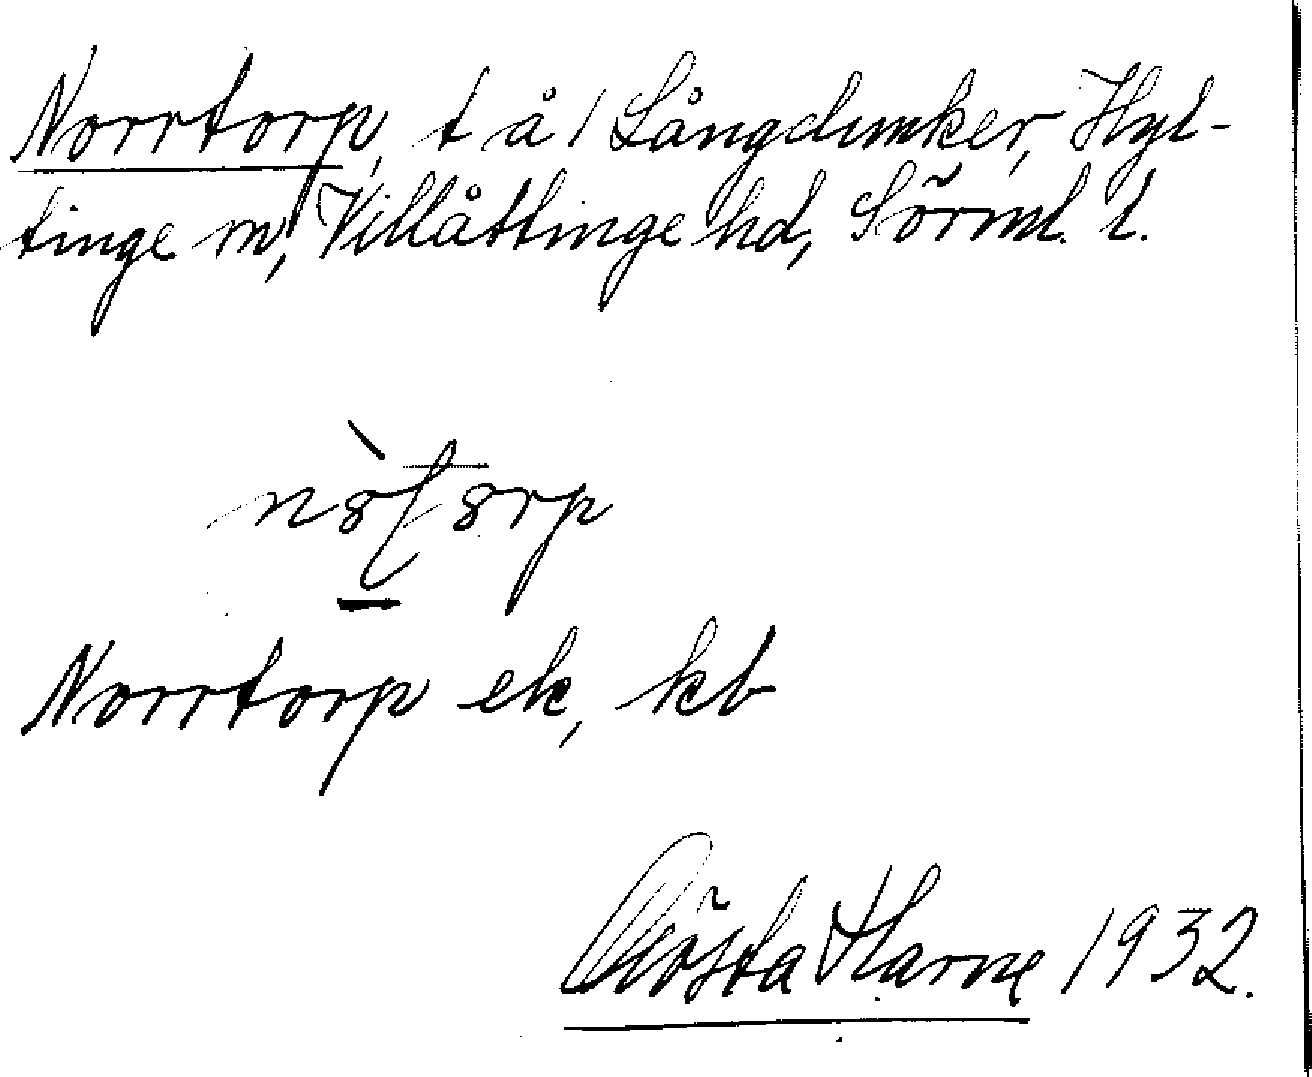 Norrtorp, t å / Långdunker, Hyl-
tinge sn, Villåttinge hd, Sörml. l.
Norrtorp ek, kb
Gösta Harne 1932.